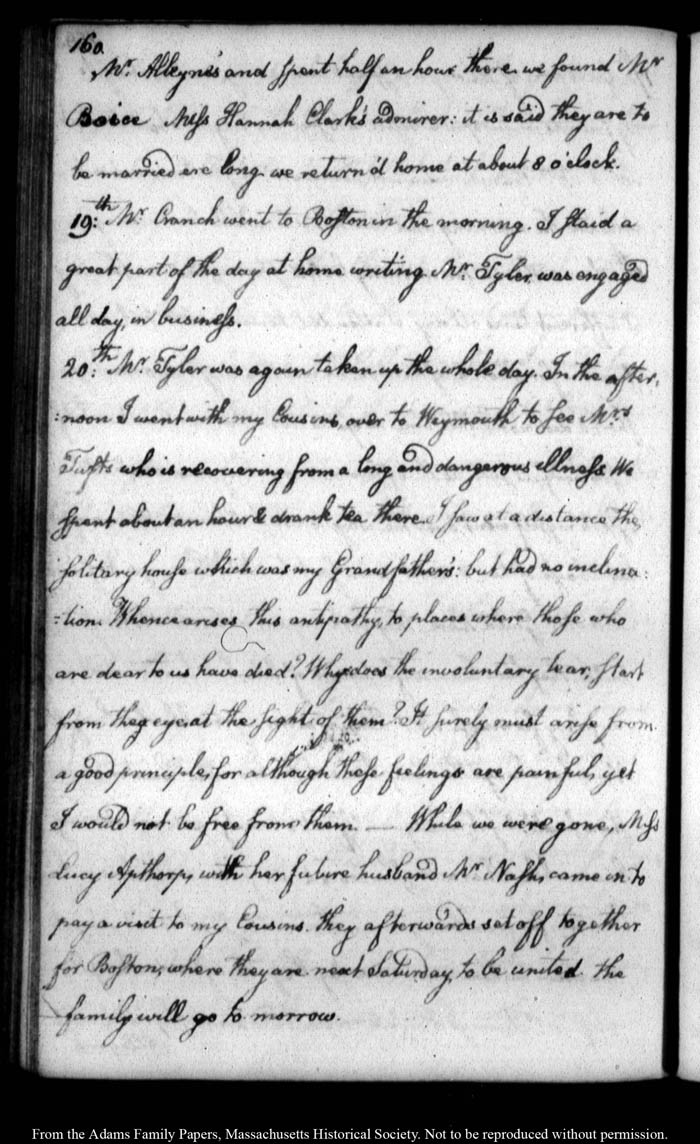 160.
Mr. Alleyne's and spent half an hour there. we found Mr
Boice Miss Hannah Clark's admirer: it is said they are to
be married ere long. we return'd home at about 8 o'clock.
19:th Mr. Cranch went to Boston in the morning. I staid a
great part of the day at home writing. Mr. Tyler, was engaged
all day, in business.
20:th Mr. Tyler was again taken up the whole day. In the after,
:noon I went with my Cousins, over to Weymouth to see Mrs
Tufts who is recovering from a long and dangerous illness. We
spent about an hour & drank tea there. I saw at a distance the,
solitary house which was my Grandfather's: but had no inclina:
:tion. Whence arises, this antipathy, to places where those who
are dear to us have died? Why does the involuntary tear, start
from the eye, at the sight of them? It surely must arise from
a good principle, for although these feelings are painful, yet
I would not be free from them. — While we were gone, Miss
Lucy Apthorp, with her future husband Mr. Nash, came in to
pay a visit to my Cousins. they afterwards set off together
for Boston, where they are next Saturday, to be united. the
family will go to morrow.
From the Adams Family Papers, Massachusetts Historical Society. Not to be reproduced without permission.